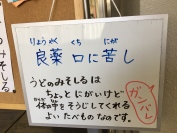 りょうやく くち にが
良薬 口に苦し
うどのみそしるは
ちょっとにがいけど
体の中をそうじしてくれる
よいたべものなのです。
ガンバレ